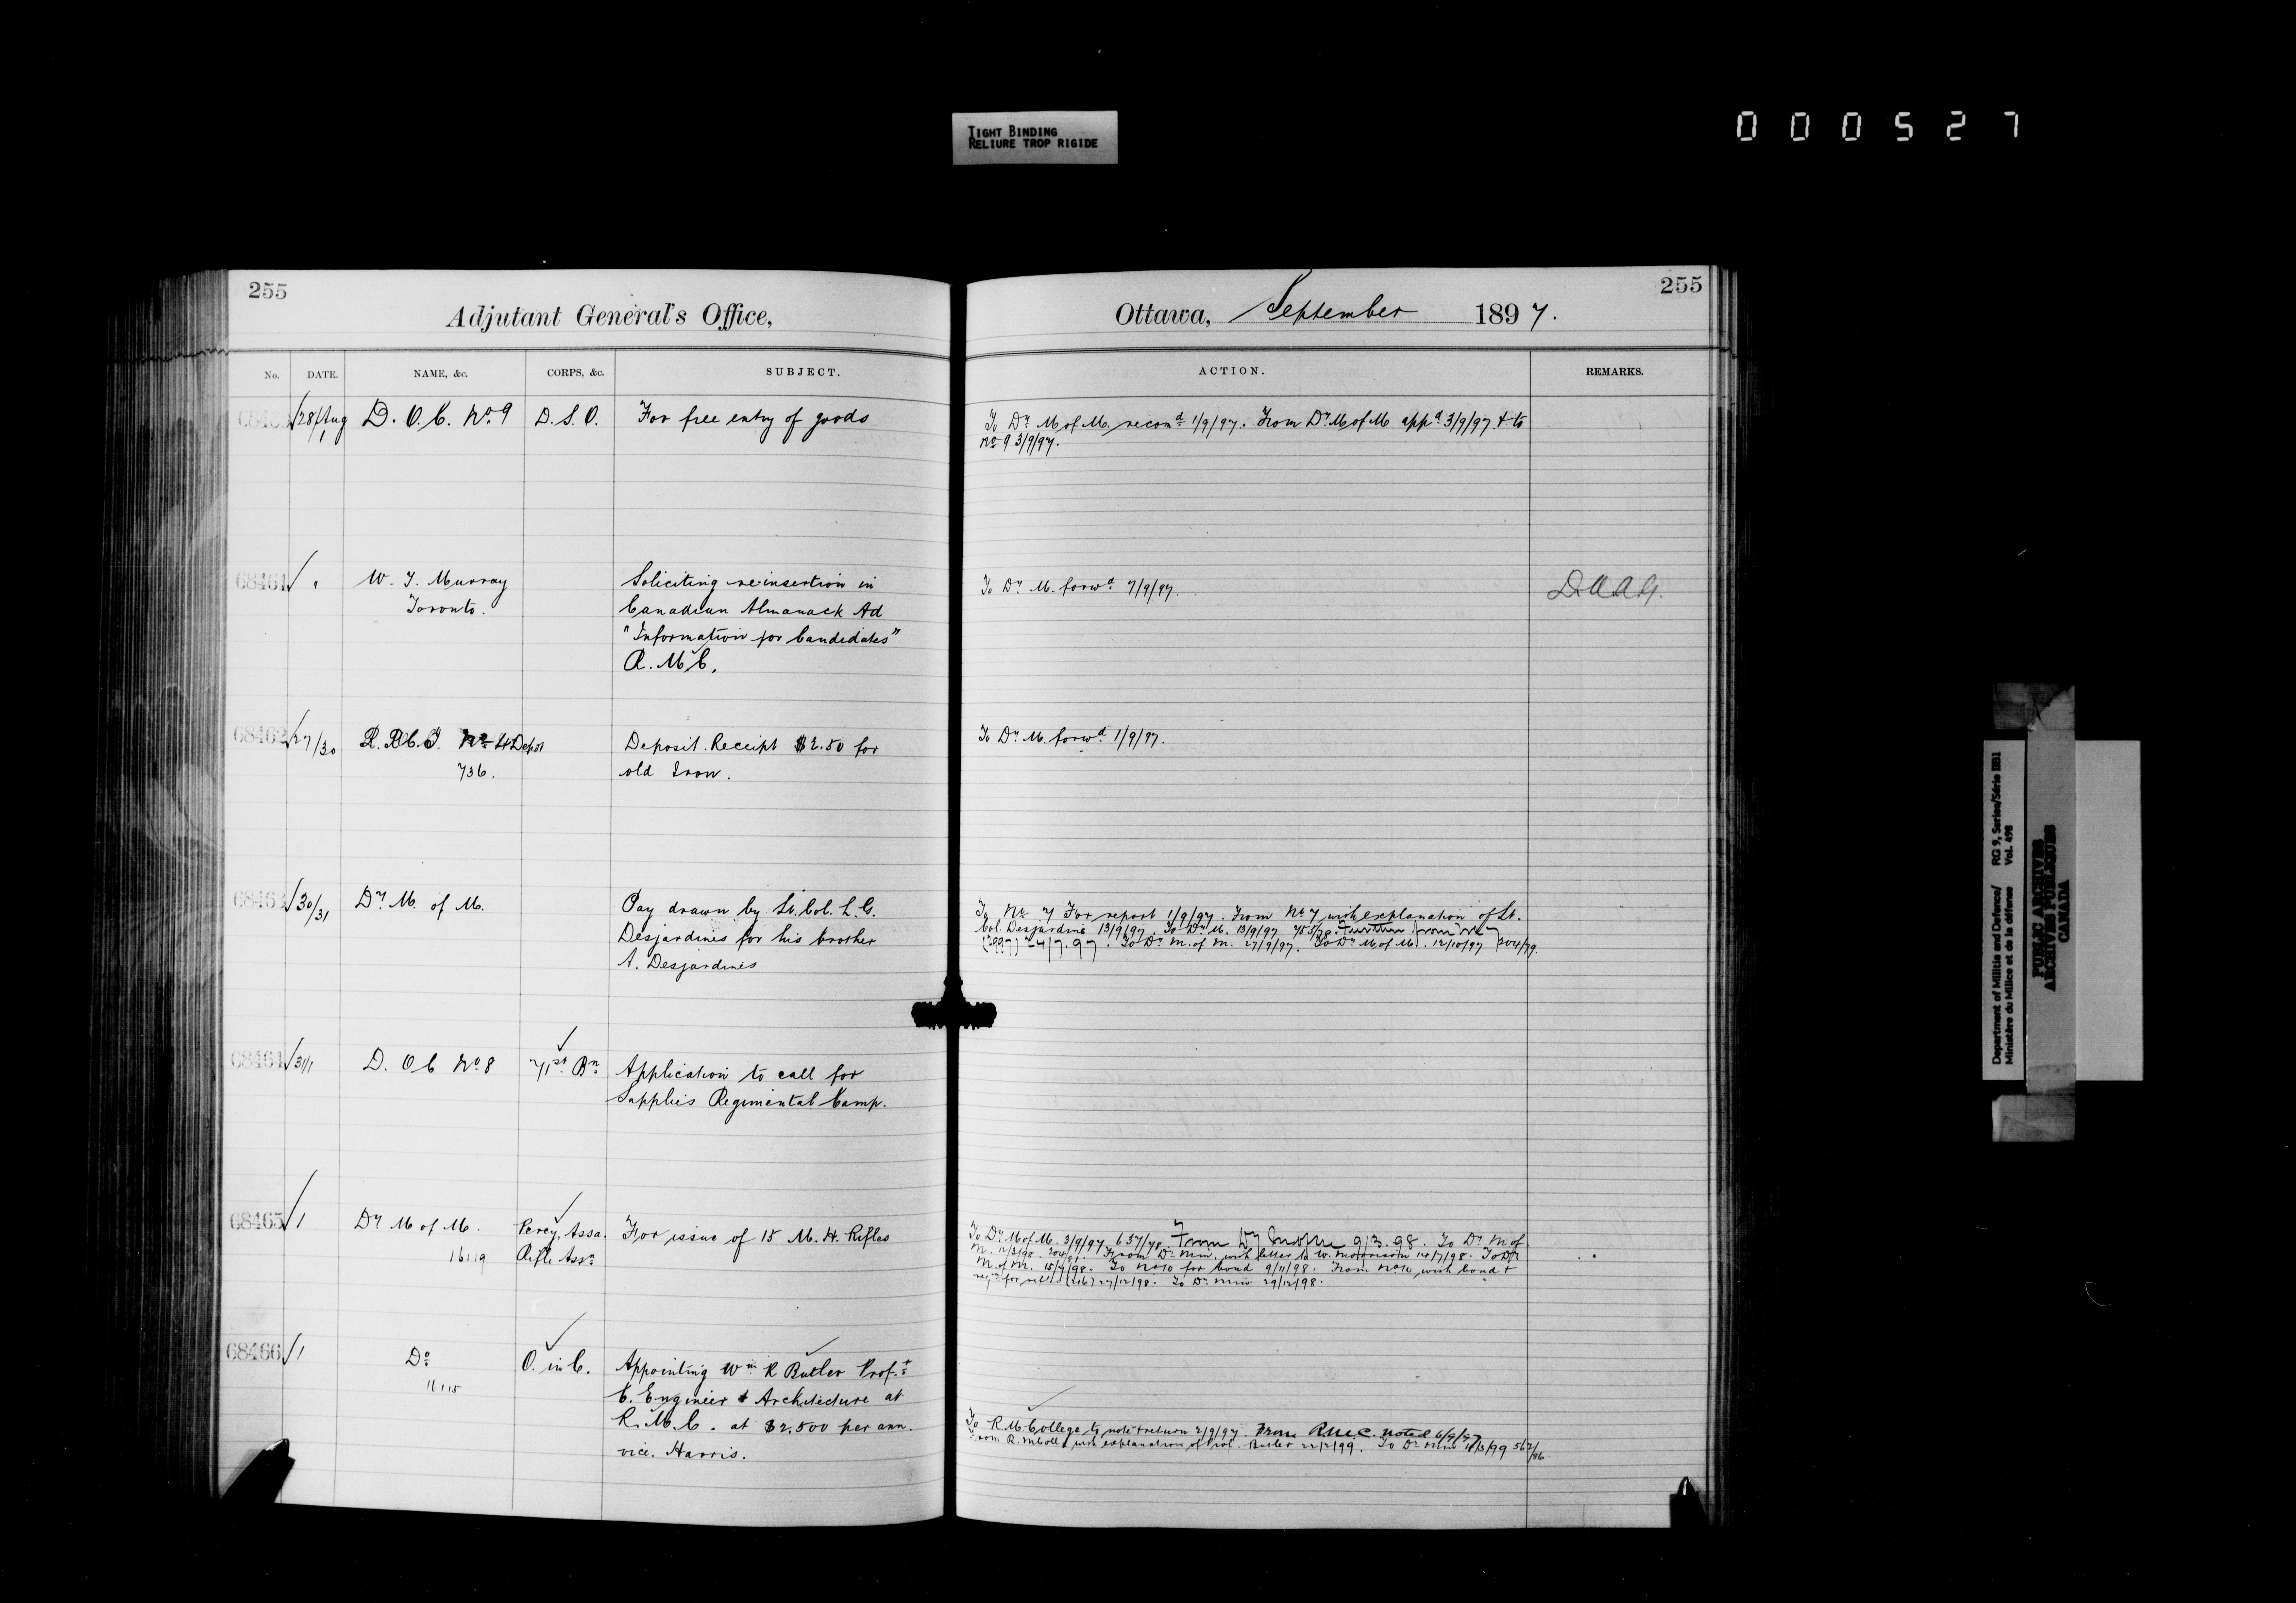 TIGHT BINDING
RELIURE TROP RIGIDE
000527
255
Adjutant General's Office,
No. DATE. NAME, &c. CORPS, &c. SUBJECT.
28 Aug D. O. C. No 9 D. S. O. For free entry of goods
68461 " W. T. Murray Soliciting re-insertion in
Toronto. Canadian Almanack Ad
"Information for Candidates"
R. M. C.
68462 27/30 R. R. C. I. No 4 Depot Deposit Receipt $2.50 for
736. old Iron.
68463 30/31 Dy M. of M. Pay drawn by Lt. Col. L. G.
Desjardines for his brother
A. Desjardines
68464 31/1 D. O C No 8 71st Bn Application to call for
Supplies Regimental Camp.
68465 1 Dy M of M. Percy, Assa. For issue of 15 M. H. Rifles
16119 Rifle Assn
68466 1 Do O. in C. Appointing Wm R Butler Profr
16115 C. Engineer & Architecture at
R. M. C. at $2.500 per ann.
vice. Harris.
255
Ottawa, September 1897.
ACTION. REMARKS.
To Dy M of M. recomd 1/9/97. From Dy M of M appd 3/9/97 & to
No 9 3/9/97.
To Dy M. forwd 7/9/97. D.A.A.G.
To Dy M. forwd 1/9/97.
To No 7 For report 1/9/97. From No 7 with explanation of Lt.
Col. Desjardine 13/9/97. To Dy M. 13/9/97 Further from No 7
24/7.97. To Dy M. of M. 27/9/97. To Dy M of M. 12/10/97
To Dy M of M. 3/9/97 637/98. From Dy 9/3.98. To Dy M of
M. 12/3/98. From Dy Min. with letter to W. Morrison 14/7/98. To Dy
M. of M. 15/7/98. To No 10 for bond 9/11/98. From No 10 with bond &
27/12/98. To Dy Min 29/12/98.
To R. M. College to note & return 2/9/97. From R.M.C. noted 6/9/97
From R. M Coll with explanation of Prof. Butler 22/2/99. To Dy Min
Department of Militia and Defence/ RG 9, Series/Série IIB1
Ministère du Milice et de la défense Vol. 498
PUBLIC ARCHIVES
ARCHIVES PUBLIQUES
CANADA